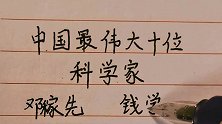 中国最伟大十位
科学家
邓稼先 钱学